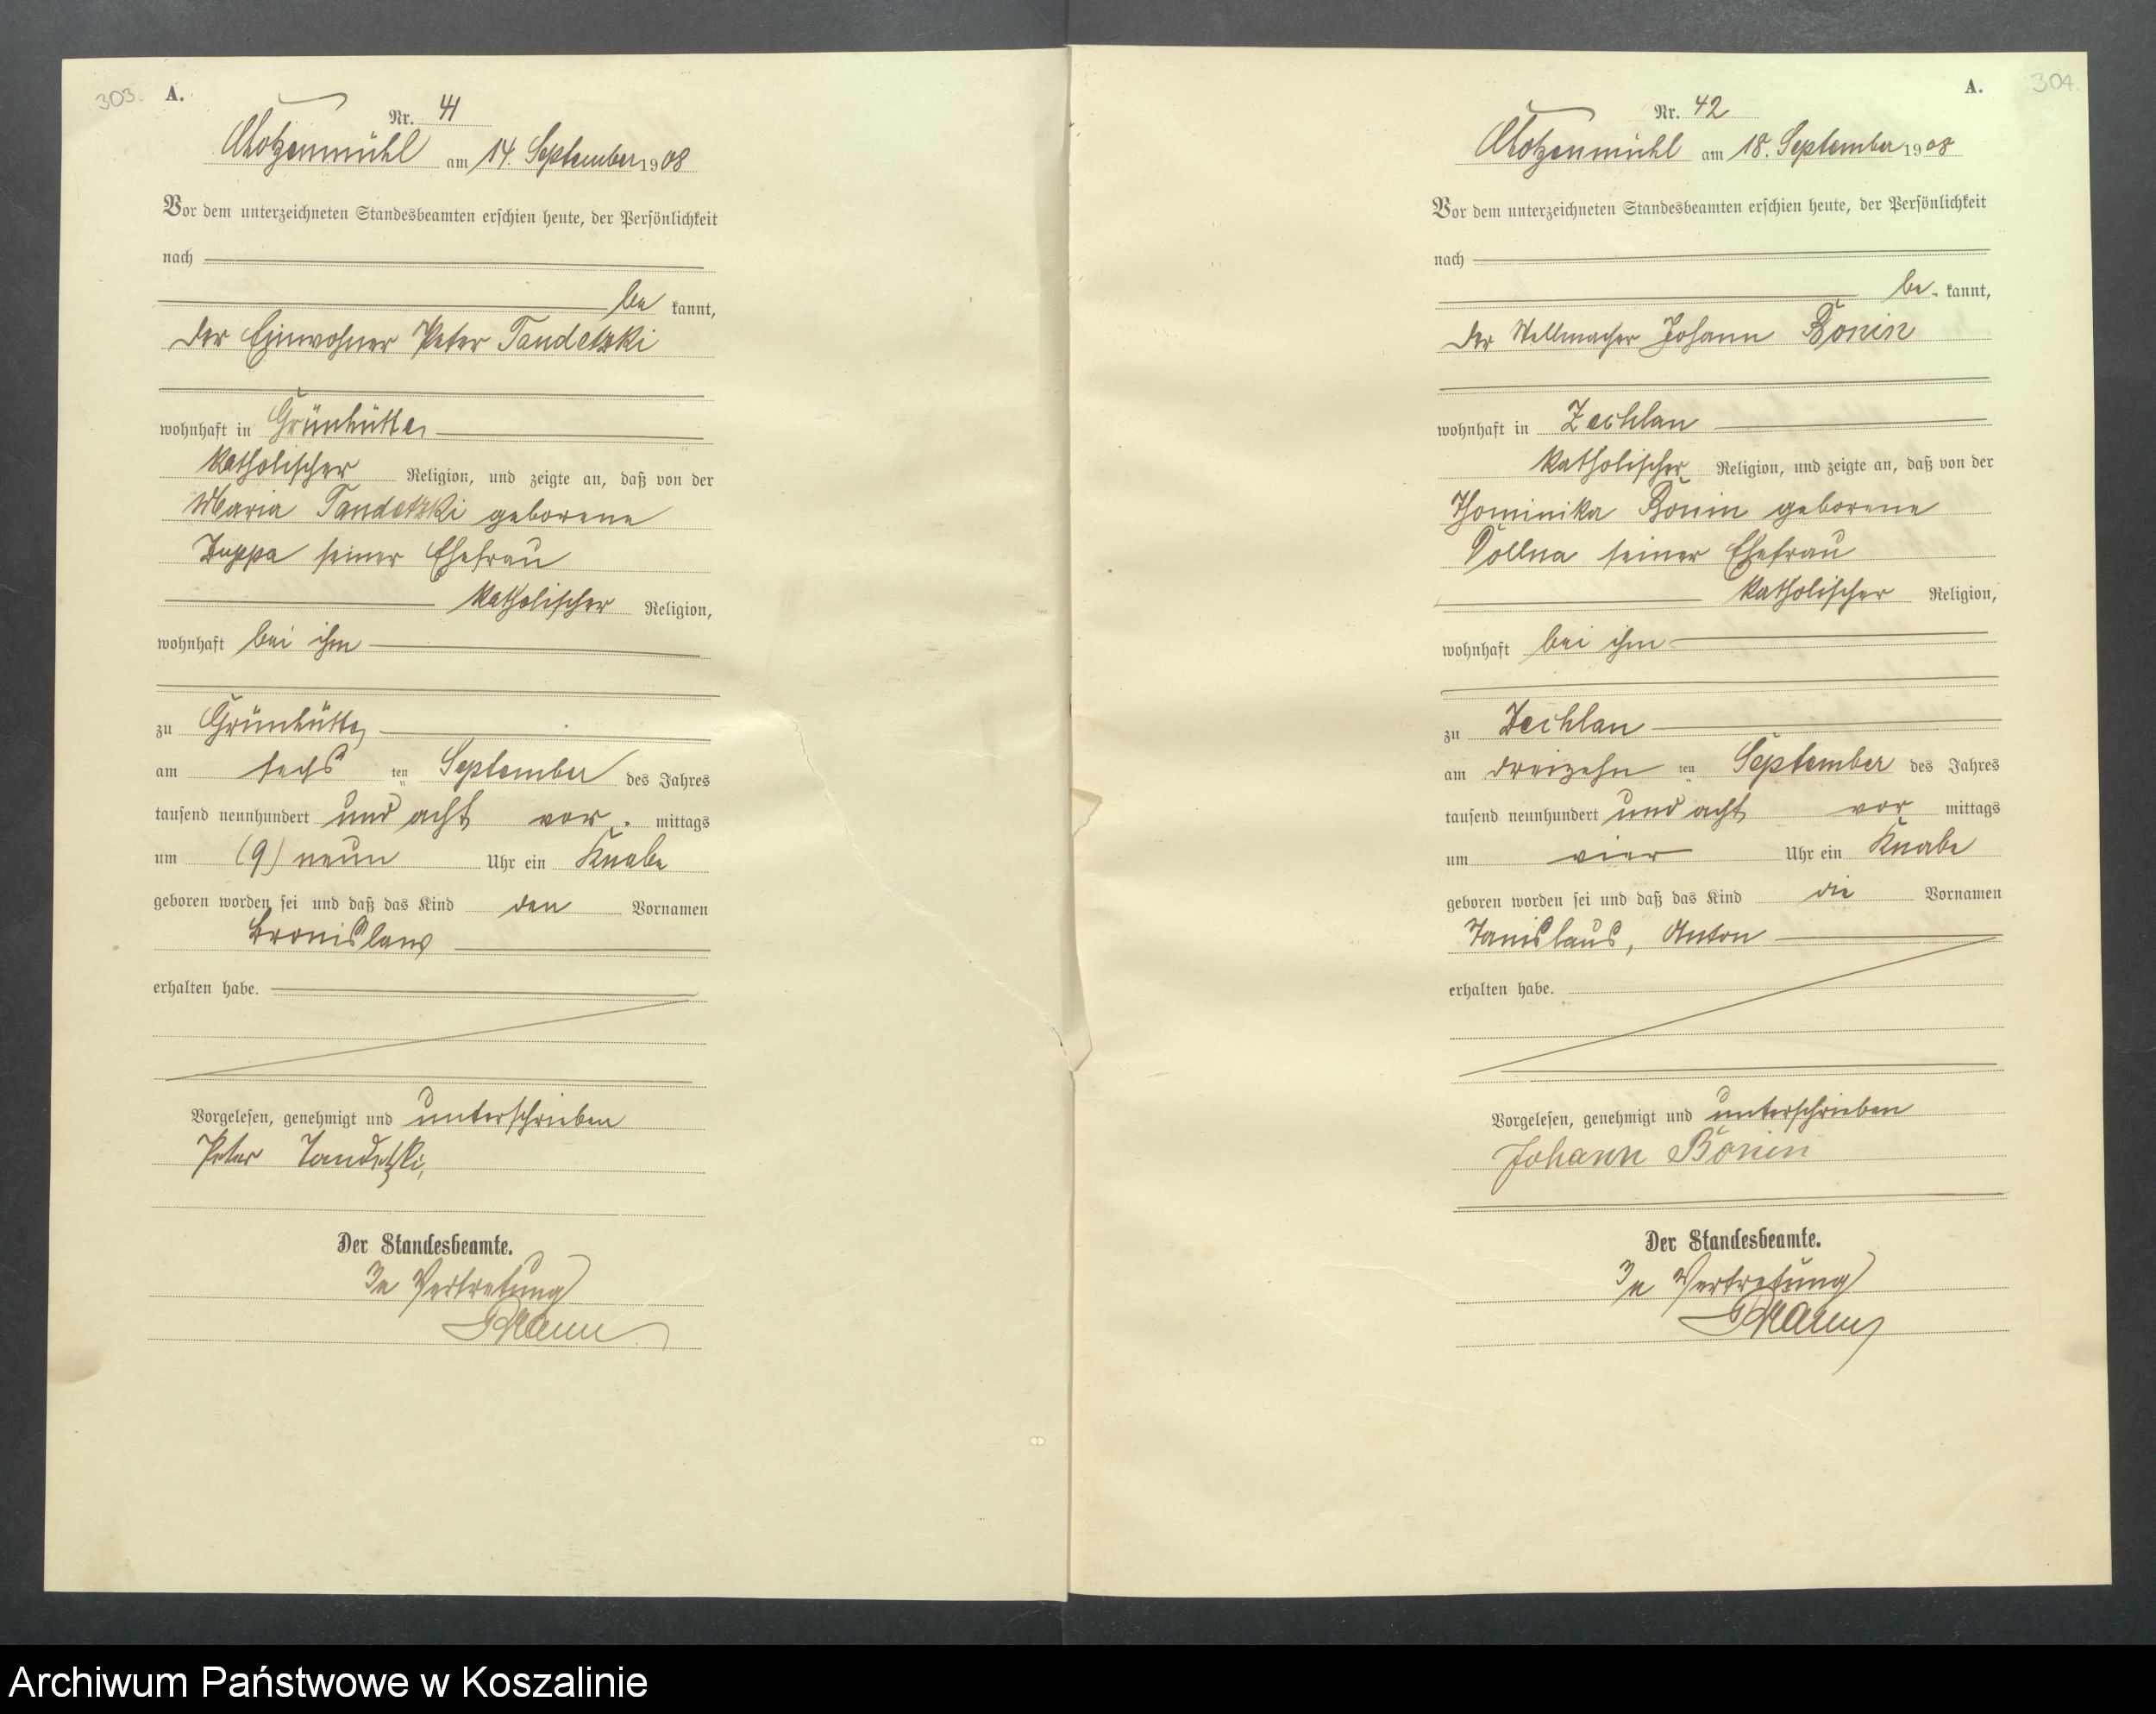 303.
A.
Nr. 41
Chotzenmühl am 14. September 1908
Vor dem unterzeichneten Standesbeamten erschien heute, der Persönlichkeit
nach
be kannt,
der Einwohner Peter Tandetzki
wohnhaft in Grünhütte,
katholischer Religion, und zeigte an, daß von der
Maria Tandetzki geborene
Zuppa seiner Ehefrau
katholischer Religion,
wohnhaft bei ihm
zu Grünhütte,
am sechs ten September des Jahres
tausend neunhundert und acht vor. mittags
um (9) neun Uhr ein Knabe
geboren worden sei und daß das Kind den Vornamen
Bronislaw
erhalten habe.
Vorgelesen, genehmigt und unterschrieben
Peter Tandetzki,
Der Standesbeamte.
In Vertretung
A.
304.
Nr. 42
Chotzenmühl am 18. September 1908
Vor dem unterzeichneten Standesbeamten erschien heute, der Persönlichkeit
nach
be- kannt,
der Stellmacher Johann Bonin
wohnhaft in Zechlau
katholischer Religion, und zeigte an, daß von der
Thominika Bonin geborene
Dollna seiner Ehefrau
katholischer Religion,
wohnhaft bei ihm
zu Zechlau
am dreizehn ten September des Jahres
tausend neunhundert und acht vor mittags
um vier Uhr ein Knabe
geboren worden sei und daß das Kind die Vornamen
Stanislaus, Anton
erhalten habe.
Vorgelesen, genehmigt und unterschrieben
Johann Bonin
Der Standesbeamte.
In Vertretung
Archiwum Państwowe w Koszalinie